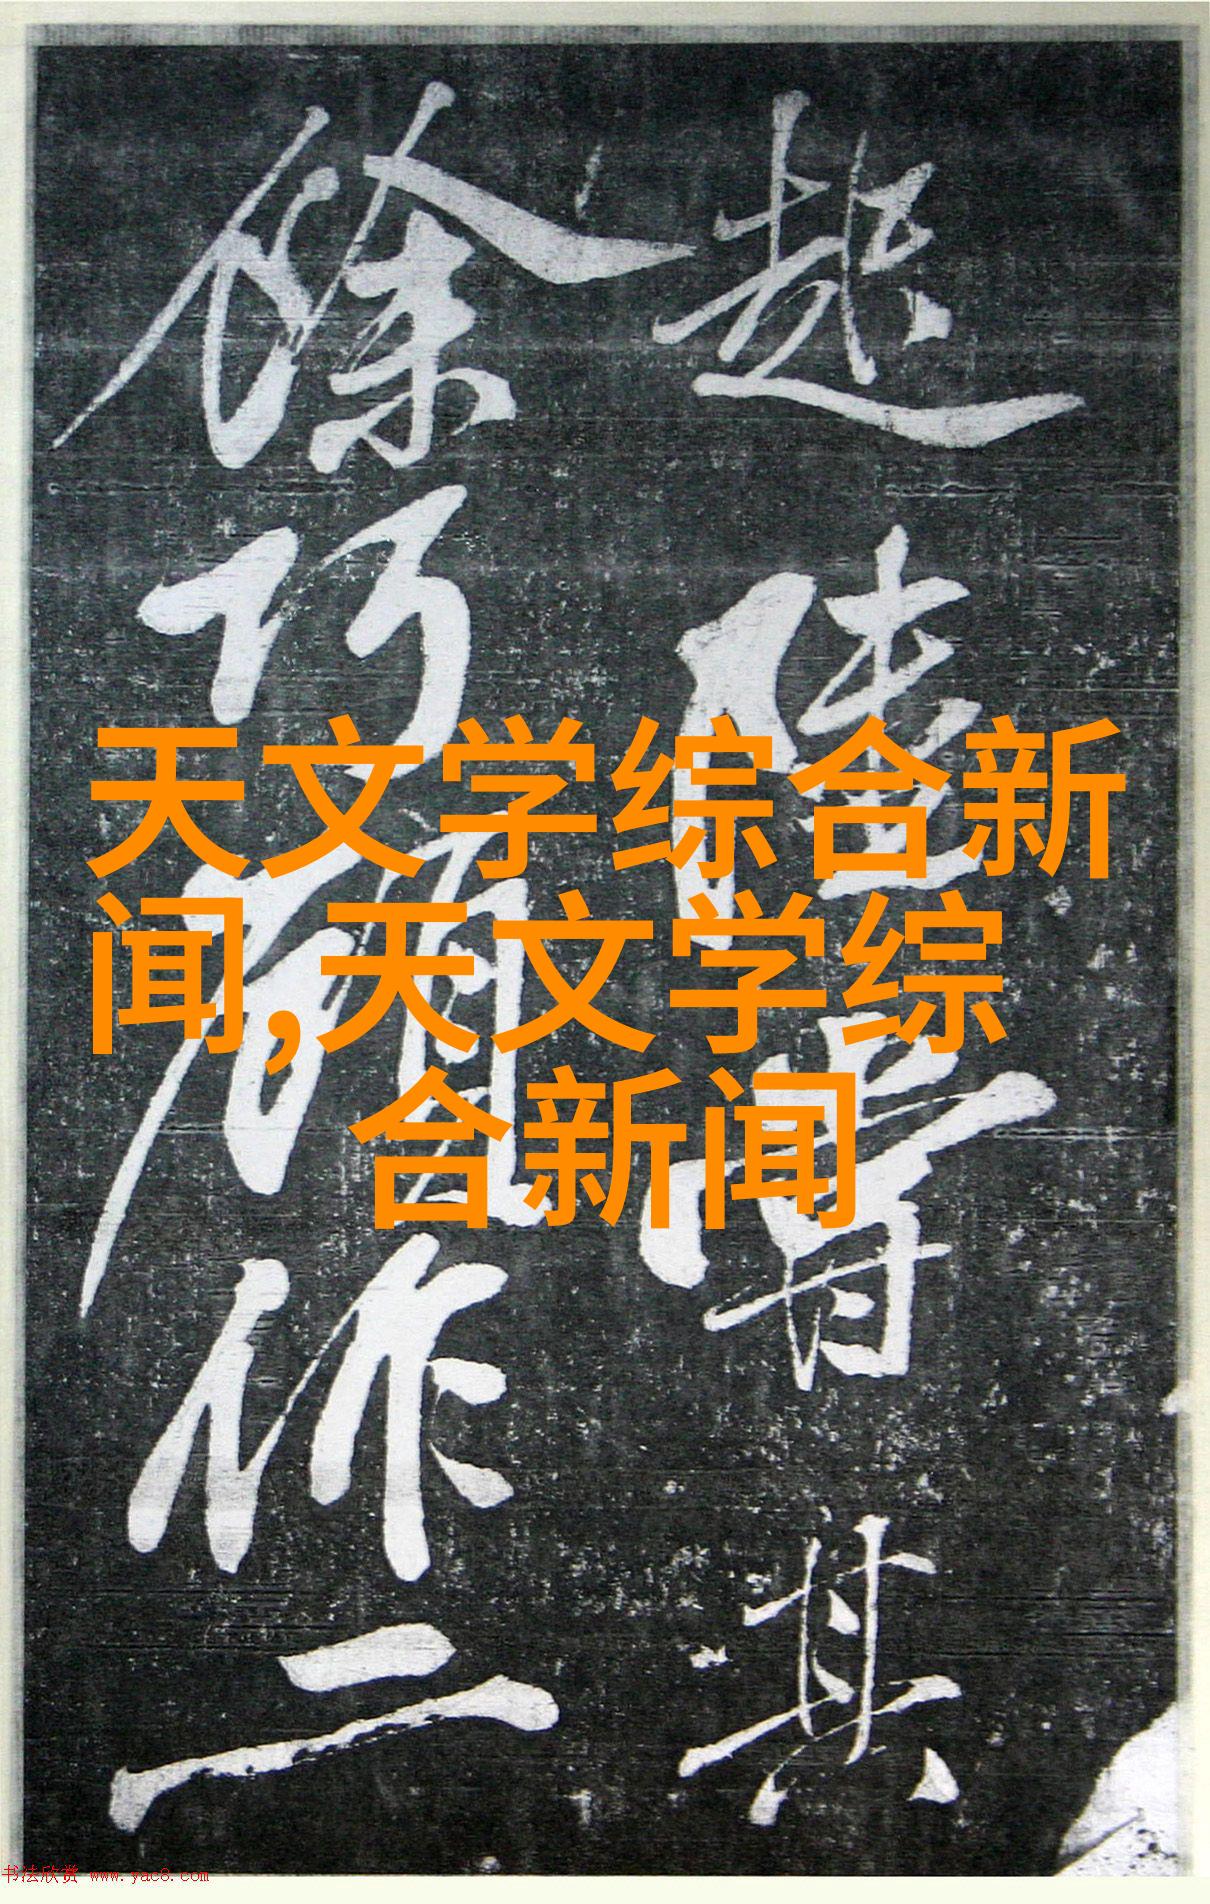 其
巧顧作二
天文学综合新
闻,天文学综
合新闻
书法欣赏 www.yac8.com